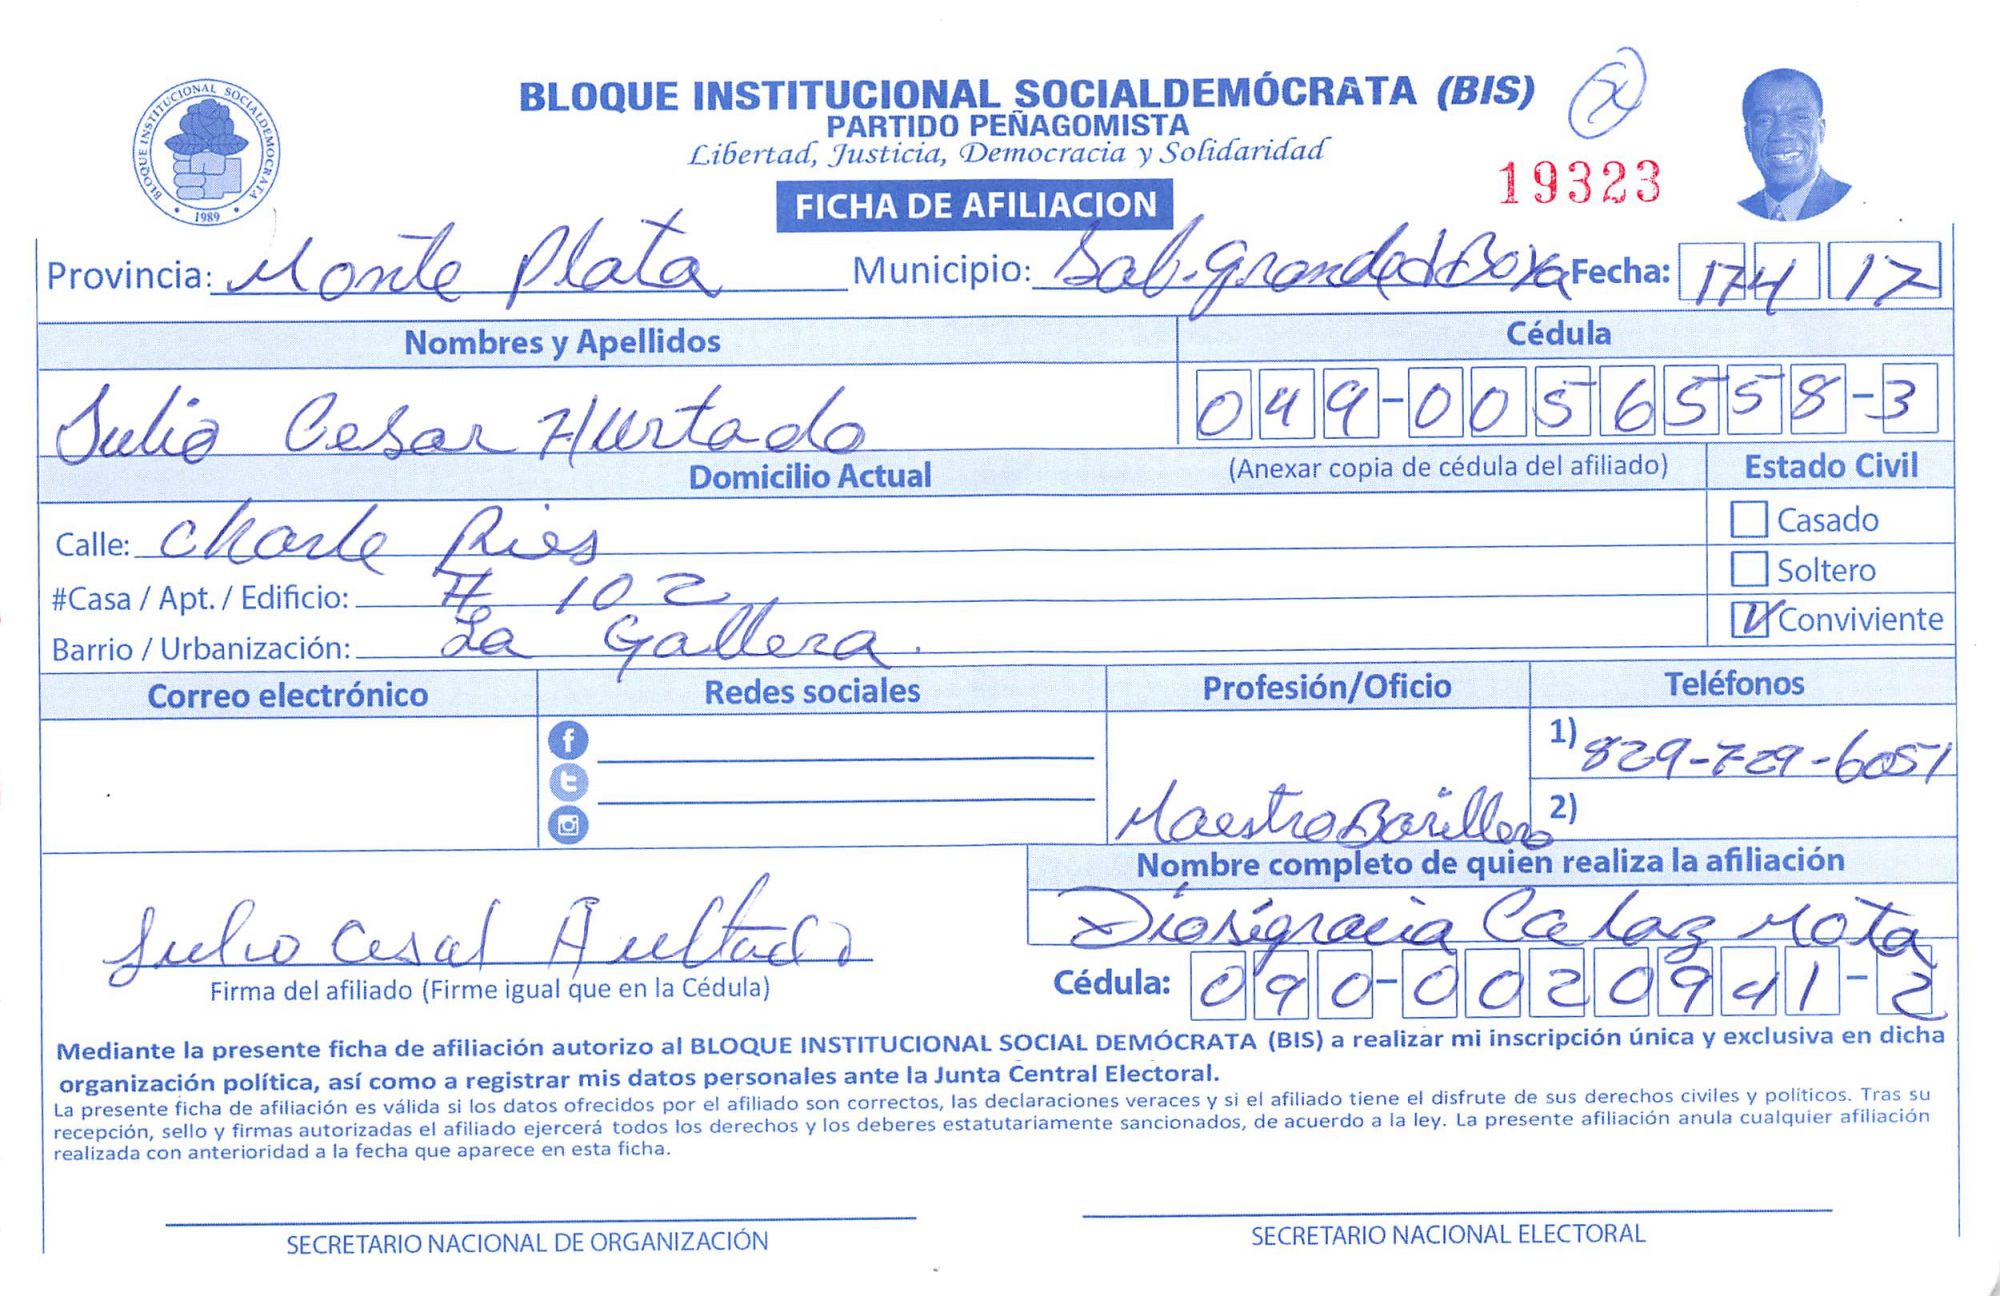 BLOQUE INSTITUCIONAL SOCIALDEMÓCRATA (BIS)
PARTIDO PEÑAGOMISTA
Libertad, Justicia, Democracia y Solidaridad
19323
FICHA DE AFILIACION
BLOQUE INSTITUCIONAL SOCIALDEMOCRATA
1989
Provincia: Monte Plata Municipio: Sab. Grande d Boya Fecha: 17 4 17
Nombres y Apellidos Cédula
Julio Cesar Hurtado 049-0056558-3
Domicilio Actual (Anexar copia de cédula del afiliado) Estado Civil
Calle: Charle Ries Casado
#Casa / Apt. / Edificio: # 102 Soltero
Barrio / Urbanización: La Gallera. Conviviente
Correo electrónico Redes sociales Profesión/Oficio Teléfonos
1) 829-729-6051
Maestro Barillero 2)
Nombre completo de quien realiza la afiliación
Julio Cesal Hultado Diosigracia Calaz Mota
Firma del afiliado (Firme igual que en la Cédula) Cédula: 090-0020941-2
Mediante la presente ficha de afiliación autorizo al BLOQUE INSTITUCIONAL SOCIAL DEMÓCRATA (BIS) a realizar mi inscripción única y exclusiva en dicha
organización política, así como a registrar mis datos personales ante la Junta Central Electoral.
La presente ficha de afiliación es válida si los datos ofrecidos por el afiliado son correctos, las declaraciones veraces y si el afiliado tiene el disfrute de sus derechos civiles y políticos. Tras su
recepción, sello y firmas autorizadas el afiliado ejercerá todos los derechos y los deberes estatutariamente sancionados, de acuerdo a la ley. La presente afiliación anula cualquier afiliación
realizada con anterioridad a la fecha que aparece en esta ficha.
SECRETARIO NACIONAL DE ORGANIZACIÓN SECRETARIO NACIONAL ELECTORAL